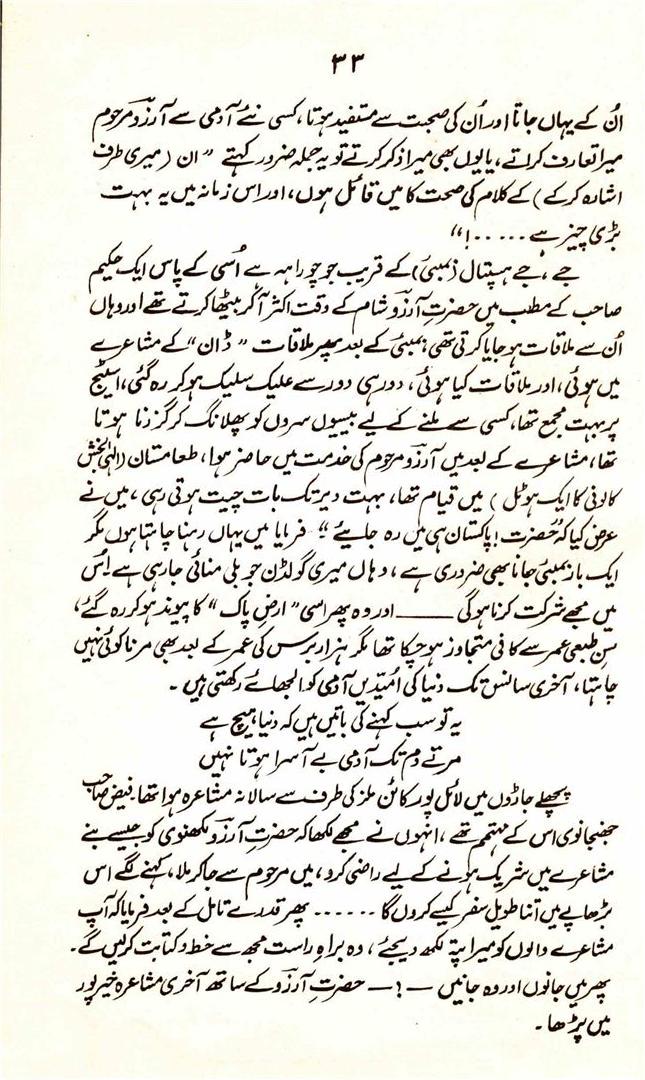 ۳۳
اُن کے یہاں جاتا اور اُن کی صحبت سے مستفید ہوتا، کسی نئے آدمی سے آرزو مرحوم
میرا تعارف کراتے، یا یوں بھی میرا ذکر کرتے تو یہ جملہ ضرور کہتے "ان (میری طرف
اشارہ کرکے) کے کلام کی صحت کا میں قائل ہوں، اور اس زمانہ میں یہ بہت
بڑی چیز ہے.....!"
جے، جے ہسپتال (بمبئی) کے قریب جو چوراہہ ہے اُسی کے پاس ایک حکیم
صاحب کے مطب میں حضرتِ آرزو شام کے وقت اکثر آکر بیٹھا کرتے تھے اور وہاں
اُن سے ملاقات ہوجایا کرتی تھی؛ بمبئی کے بعد پھر ملاقات "ڈان" کے مشاعرے
میں ہوئی، اور ملاقات کیا ہوئی، دور ہی دور سے علیک سلیک ہوکر رہ گئی، اسٹیج
پر بہت مجمع تھا، کسی سے ملنے کے لیے بیسیوں سروں کو پھلانگ کر گزرنا ہوتا
تھا، مشاعرے کے بعد میں آرزو مرحوم کی خدمت میں حاضر ہوا، طعامستان (الٰہی بخش
کالونی کا ایک ہوٹل) میں قیام تھا، بہت دیر تک بات چیت ہوتی رہی، میں نے
عرض کیا کہ "حضرت! پاکستان ہی میں رہ جایئے" فرمایا میں یہاں رہنا چاہتا ہوں مگر
ایک بار بمبئی جانا بھی ضروری ہے، وہاں میری گولڈن جوبلی منائی جارہی ہے اُس
میں مجھے شرکت کرنا ہوگی ــــــ اور وہ پھر اسی "ارضِ پاک" کا پیوند ہوکر رہ گئے،
سِن طبعی عمر سے کافی متجاوز ہوچکا تھا مگر ہزار برس کی عمر کے بعد بھی مرنا کوئی نہیں
چاہتا، آخری سانس تک دنیا کی اُمیدیں آدمی کو الجھائے رکھتی ہیں۔
یہ تو سب کہنے کی باتیں ہیں کہ دنیا، ہیچ ہے
مرتے دم تک آدمی بے آسرا ہوتا نہیں
پچھلے جاڑوں میں لائل پور کاٹن ملز کی طرف سے سالانہ مشاعرہ ہوا تھا۔ فیض صاحب
جھنجانوی اس کے مہتمم تھے، انہوں نے مجھے لکھا کہ حضرتِ آرزو لکھنوی کو جیسے بنے
مشاعرے میں شریک ہونے کے لیے راضی کرو، میں مرحوم سے جاکر ملا، کہنے لگے اس
بڑھاپے میں اتنا طویل سفر کیسے کروں گا...... پھر قدرے تامل کے بعد فرمایا کہ آپ
مشاعرے والوں کو میرا پتہ لکھ دیجئے، وہ براہِ راست مجھ سے خط و کتابت کرلیں گے۔
پھر میں جانوں اور وہ جانیں ــ؟ــ حضرتِ آرزو کے ساتھ آخری مشاعرہ خیرپور
میں پڑھا۔